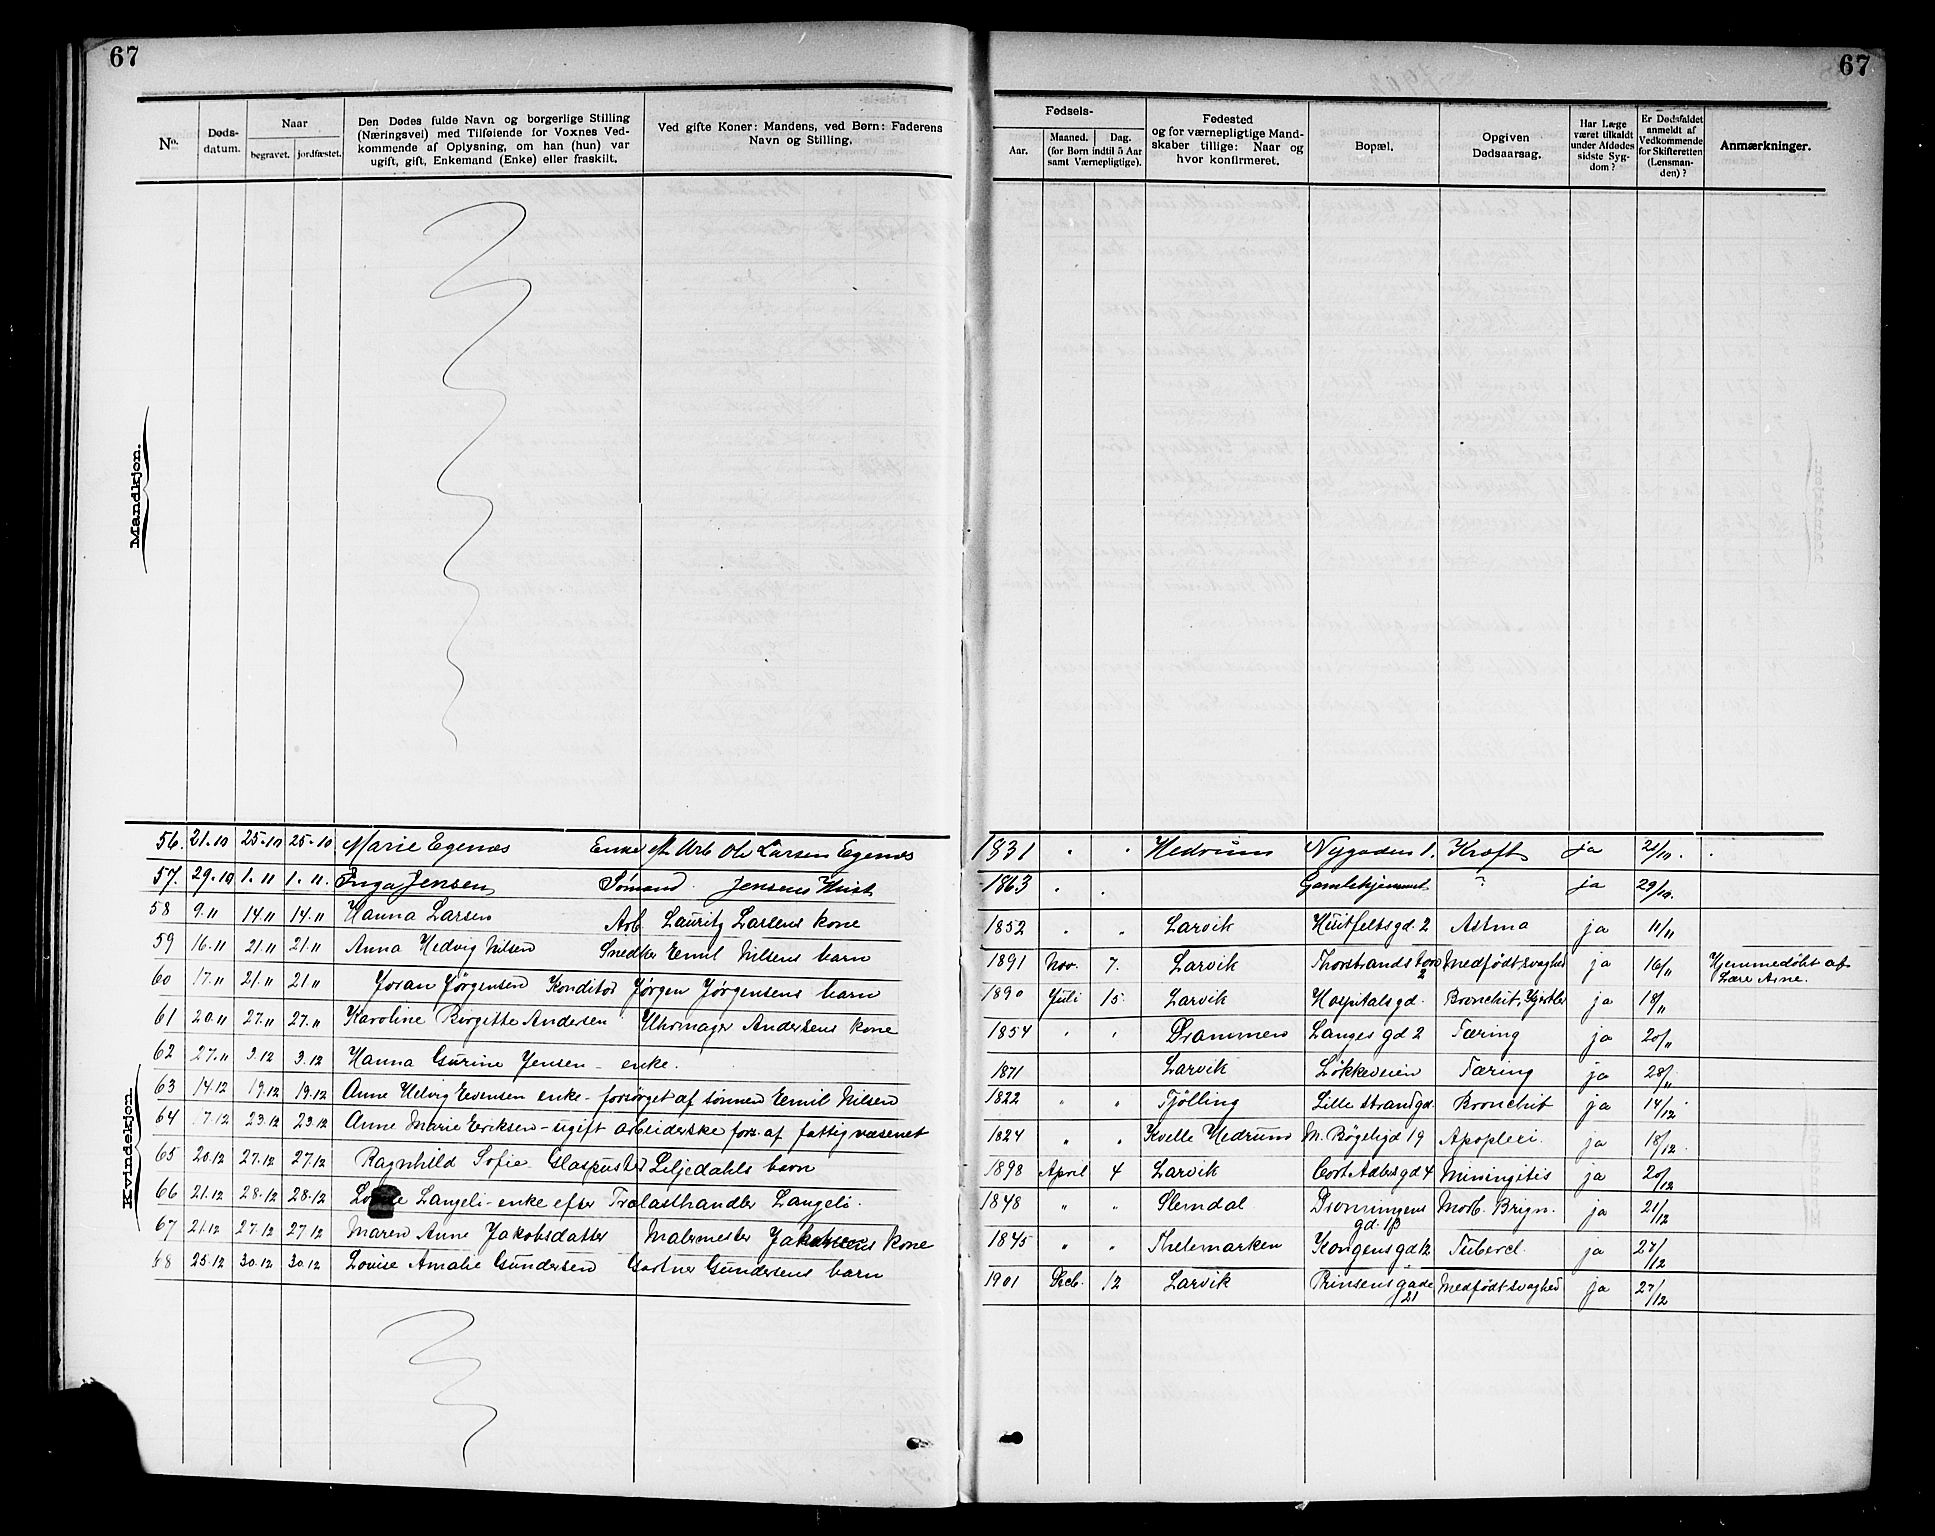 67
67
No.
Døds-datum.
Naar
begravet.
jordfæstet.
Den Dødes fulde Navn og borgerlige Stilling (Næringsvei) med Tilføiende for Voxnes Vedkommende af Oplysning, om han (hun) var ugift, gift, Enkemand (Enke) eller fraskilt.
Ved gifte Koner: Mandens, ved Børn: Faderens Navn og Stilling.
Fødsels-
Aar.
Maaned.
Dag.
(for Børn indtil 5 Aar samt Værnepligtige).
Fødested og for værnepligtige Mandskaber tillige: Naar og hvor konfirmeret.
Bopæl.
Opgiven Dødsaarsag.
Har Læge været tilkaldt under Afdødes sidste Sygdom?
Er Dødsfaldet anmeldt af Vedkommende for Skifteretten (Lensmanden)?
Anmærkninger.
Mandkjøn.
Kvindekjøn.
56. 21.10 25.10 25.10 Marie Egenæs Enke e. Arb Ole Larsen Egenæs 1831 " " Hedrum Nygaden 1. Kræft ja 21/10.
57. 29.10 1.11 1.11. Inga Jensen Sømand Jensens Hust 1863 " " Gamlehjemmet ? ja 29/10.
58 9.11 14.11 14.11 Hanna Larsen Arb. Lauritz Larsens kone 1852 " " Larvik Huitfeltsgd. 2 Astma ja 11/11
59 16.11 21.11 21.11 Anna Hedvig Nilsen Snedker Emil Nilsens barn 1891 Nov. 7. Larvik Thorstrands torv 2 Medfødt svaghed ja 16/11 Hjemmedøbt af Lære Arne.
60 17.11 21.11 21.11 Joran Jørgensen Konditor Jørgen Jørgensens barn 1890 Juli 15. Larvik Hospitalsgd. Bronchit, Kjirtler ja 18/11
61 20.11 27.11 27.11 Karoline Birgitte Andersen Uhrmager Andersens kone 1854 " " Drammen Langes gd 2 Tæring ja 20/11
62 27.11 3.12 3.12 Hanna Gurine Jensen - enke. 1871 Larvik Løkkeveien Tæring ja 28/11
63 14.12 19.12 19.12 Anne Helvig Evensen enke - forsørget af sønnen Emil Nilsen 1822 " " Tjølling Lille Strandgd. Bronchit ja 14/12
64 17.12 23.12 23.12 Anne Marie Eriksen - ugift arbeiderske fors. af fattigvæsenet 1824 " " Kvelle Hedrum M. Bøgeligd 19 Apoplexi. ja 18/12
65 20.12 27.12 27.12 Ragnhild Sofie Glaspuster Liljedahls barn 1898 April 4 Larvik Cort Adlersgd 4 Miningitis ja 20/12
66 21.12 28.12 28.12 Langeli - enke efter Trælasthandler Langeli. 1848 " " Slemdal Dronningens gd. 13 Morb. Brign. ja 21/12
67 21.12 27.12 27.12 Maren Anne Jakobsdatter Malermester Jakobsens kone 1845 " " Thelemarken Kongensgd 12 Tubercl. ja 27/12
68 25.12 30.12 30.12 Lovise Amalie Gundersen Gartner Gundersens barn 1901 Decb. 12 Larvik Prinsensgade 21 Medfødt svaghed ja 27/12